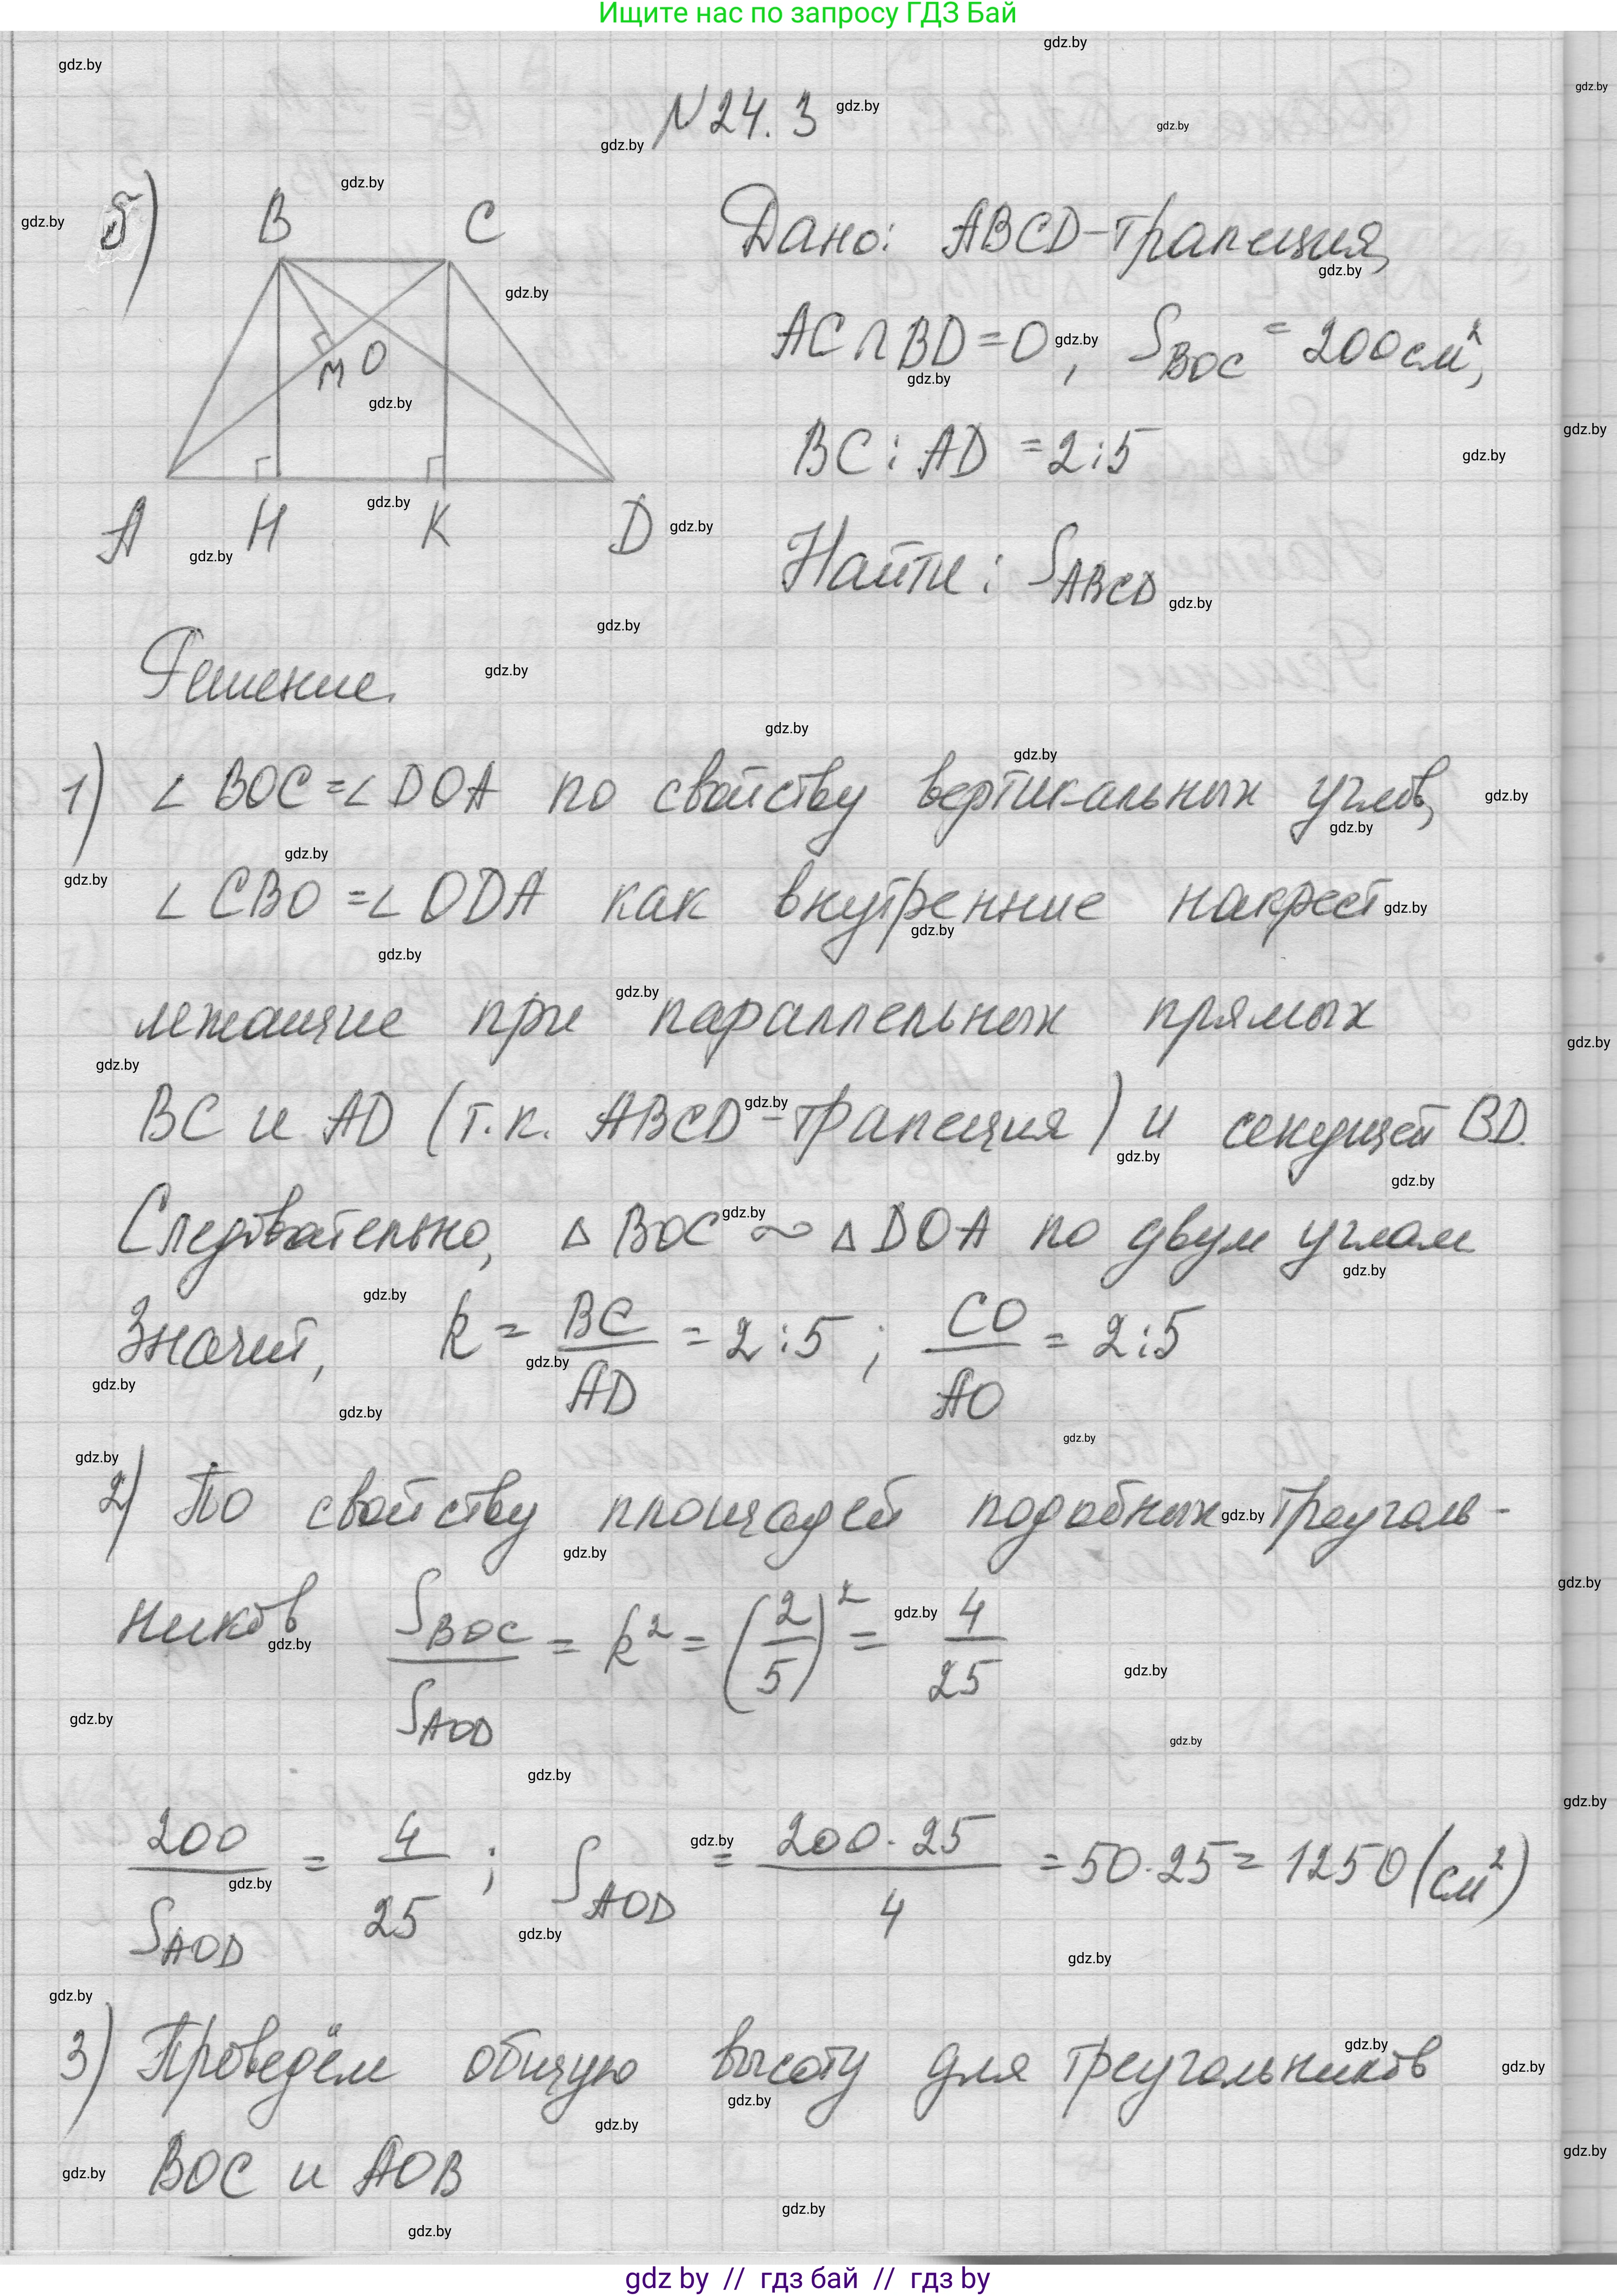 Ищите нас по запросу ГДЗ Бай
N 24.3
б)
B C
M O
A H K D
Дано: ABCD-трапеция,
AC∩BD=O, S_BOC = 200 см²,
BC : AD = 2:5
Найти: S_ABCD
Решение.
1) ∠ BOC=∠ DOA по свойству вертикальных углов,
∠ CBO =∠ ODA как внутренние накрест
лежащие при параллельных прямых
BC и AD (т.к. ABCD-трапеция) и секущей BD.
Следовательно, Δ BOC ∾ Δ DOA по двум углам
Значит, k = BC/AD = 2:5 ; CO/AO = 2:5
2) По свойству площадей подобных треуголь-
ников S_BOC/S_AOD = k² = (2/5)² = 4/25
200/S_AOD = 4/25 ; S_AOD = 200·25/4 = 50·25 = 1250 (см²)
3) Проведём общую высоту для треугольников
BOC и AOB
gdz by // гдз бай // гдз by